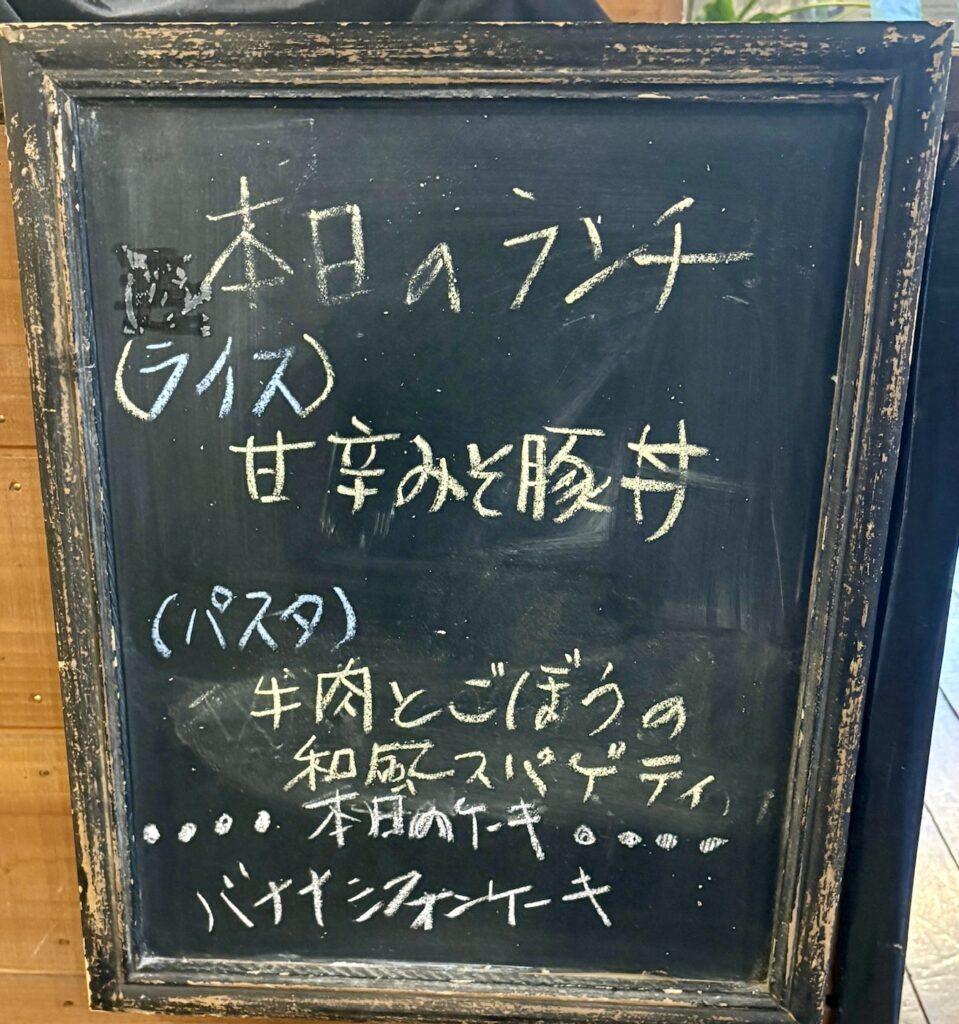 本日のランチ
(ライス)
甘辛みそ豚丼
(パスタ)
牛肉とごぼうの
和風スパゲティ
・・・・本日のケーキ・・・・
バナナシフォンケーキ